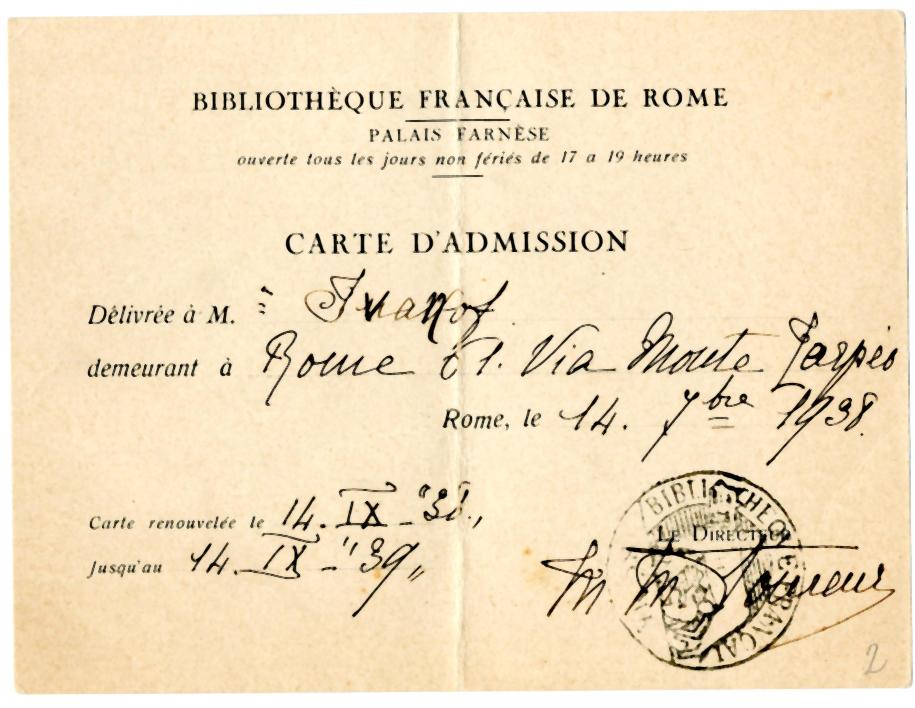 BIBLIOTHÈQUE FRANÇAISE DE ROME
PALAIS FARNÈSE
ouverte tous les jours non fériés de 17 a 19 heures
CARTE D'ADMISSION
Délivrée à M. Ivanof
demeurant à Rome 61. Via Monte Tarpeo
Rome, le 14. 7bre 1938.
Carte renouvelée le 14. IX - "38.,
Jusqu'au 14. IX - "39,,
LE DIRECTEUR
BIBLIOTHEQUE FRANÇAI
M. M.
2